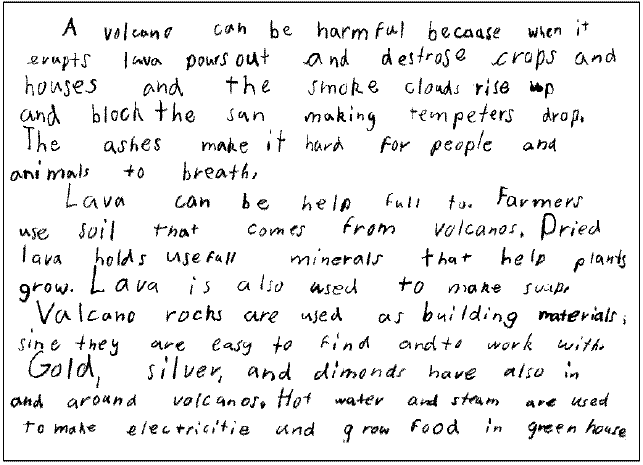 A volcano can be harmful because when it
erupts lava pours out and destrose crops and
houses and the smoke clouds rise up
and block the sun making tempeters drop.
The ashes make it hard for people and
animals to breath.
Lava can be help full to. Farmers
use soil that comes from volcanos. Dried
lava holds usefull minerals that help plants
grow. Lava is also used to make soap.
Valcano rocks are used as building materials,
sine they are easy to find and to work with.
Gold, silver, and dimonds have also in
and around volcanos. Hot water and steam are used
to make electricitie and grow food in green house